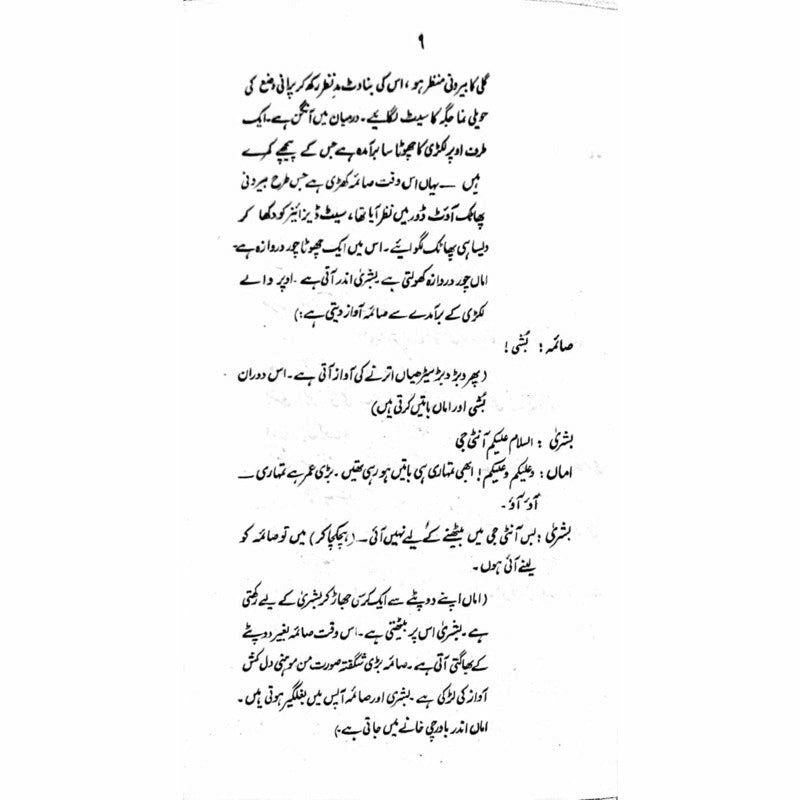 ۹
گلی کا بیرونی منظر ہو، اس کی بناوٹ مدِ نظر رکھ کر پرانی وضع کی
حویلی نما جگہ کا سیٹ لگائیے۔ درمیان میں آنگن ہے۔ ایک
طرف اوپر لکڑی کا چھوٹا سا برآمدہ ہے جس کے پیچھے کمرے
ہیں ــ یہاں اس وقت صائمہ کھڑی ہے جس طرح بیرونی
پھاٹک آؤٹ ڈور میں نظر آیا تھا، سیٹ ڈیزائنر کو دکھا کر
ویسا ہی پھاٹک لگوائیے۔ اس میں ایک چھوٹا چور دروازہ ہے۔
اماں چور دروازہ کھولتی ہے بشریٰ اندر آتی ہے۔ اوپر والے
لکڑی کے برآمدے سے صائمہ آواز دیتی ہے:)
صائمہ: بُشی!
(پھر دبڑ دبڑ سیڑھیاں اترنے کی آواز آتی ہے۔ اس دوران
بُشی اور اماں باتیں کرتی ہیں)
بشریٰ: السلام علیکم آنٹی جی
اماں: وعلیکم وعلیکم! ابھی تمہاری ہی باتیں ہو رہی تھیں۔ بڑی عمر ہے تمہاری ــ
آؤ آؤ۔
بشریٰ: بس آنٹی جی میں بیٹھنے کے لیے نہیں آئی ــ (ہچکچا کر) میں تو صائمہ کو
لینے آئی ہوں۔
(اماں اپنے دوپٹے سے ایک کرسی جھاڑ کر بشریٰ کے لیے رکھتی
ہے۔ بشریٰ اس پر بیٹھتی ہے۔ اس وقت صائمہ بغیر دوپٹے
کے بھاگتی آتی ہے۔ صائمہ بڑی شگفتہ صورت من موہنی دل کش
آواز کی لڑکی ہے۔ بشریٰ اور صائمہ آپس میں بغلگیر ہوتی ہیں۔
اماں اندر باورچی خانے میں جاتی ہے۔)